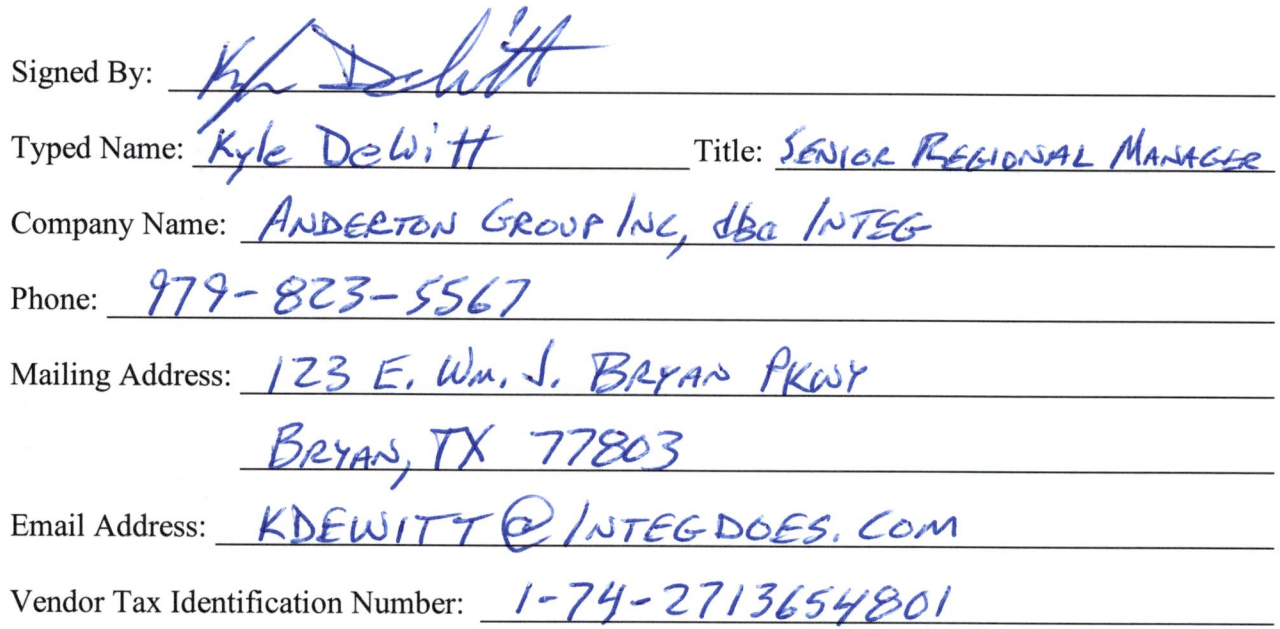 Signed By: Kyle DeWitt
Typed Name: Kyle DeWitt Title: SENIOR REGIONAL MANAGER
Company Name: ANDERTON GROUP INC, dba INTEG
Phone: 979-823-5567
Mailing Address: 123 E. WM. J. BRYAN PKWY
BRYAN, TX 77803
Email Address: KDEWITT@INTEGDOES.COM
Vendor Tax Identification Number: 1-74-2713654801